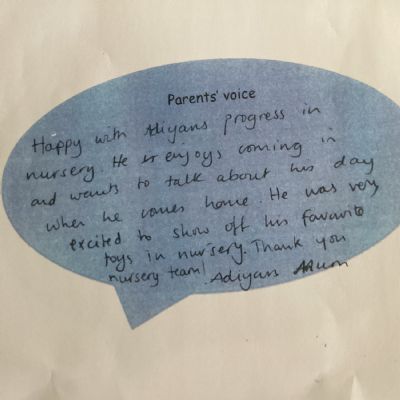 Parents' voice
Happy with Adiyans progress in
nursery. He enjoys coming in
and wants to talk about his day
when he comes home. He was very
excited to show off his favavrite
toys in nursery. Thank you
nursery team! Adiyans Mum